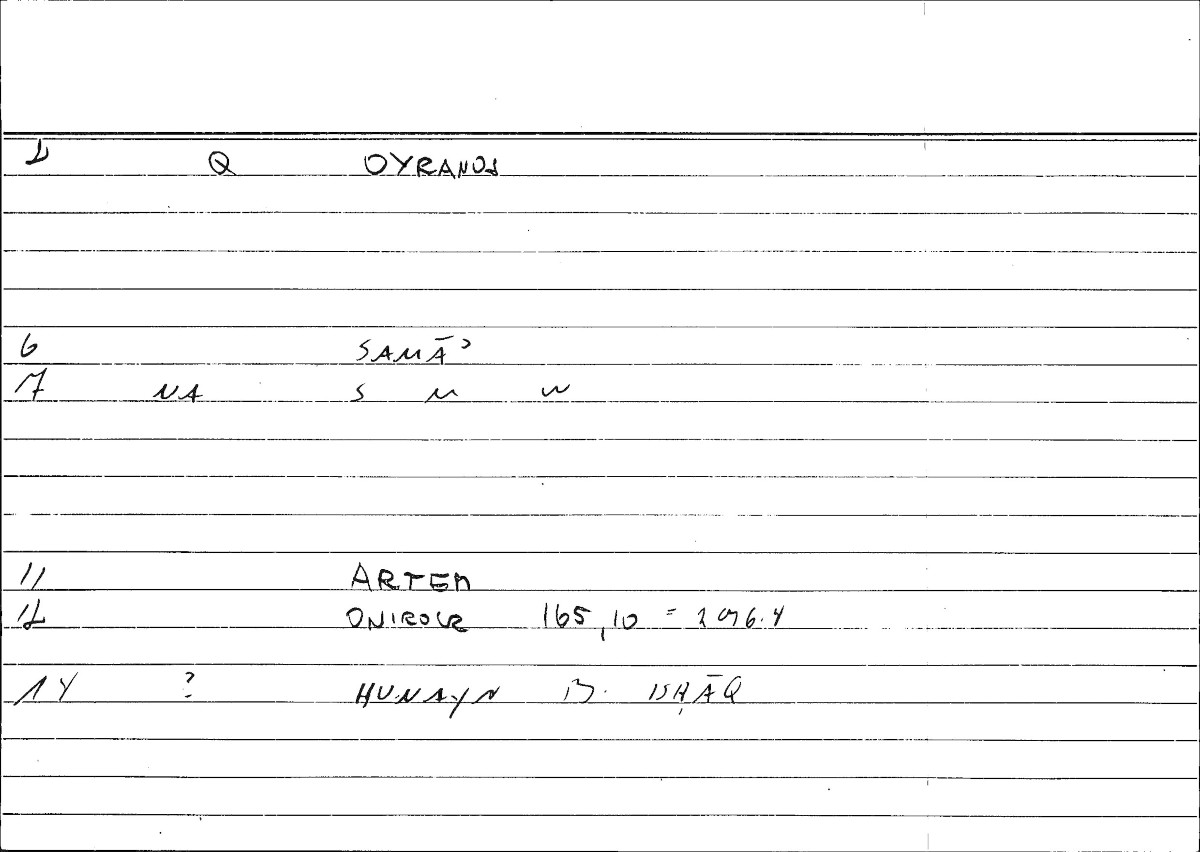 1 Q OYRANOS
6 SAMĀʾ
7 NA S M W
11 ARTEM
12 ONIROCR 165,10 = 296.4
14 ? ḤUNAYN B. ISḤĀQ